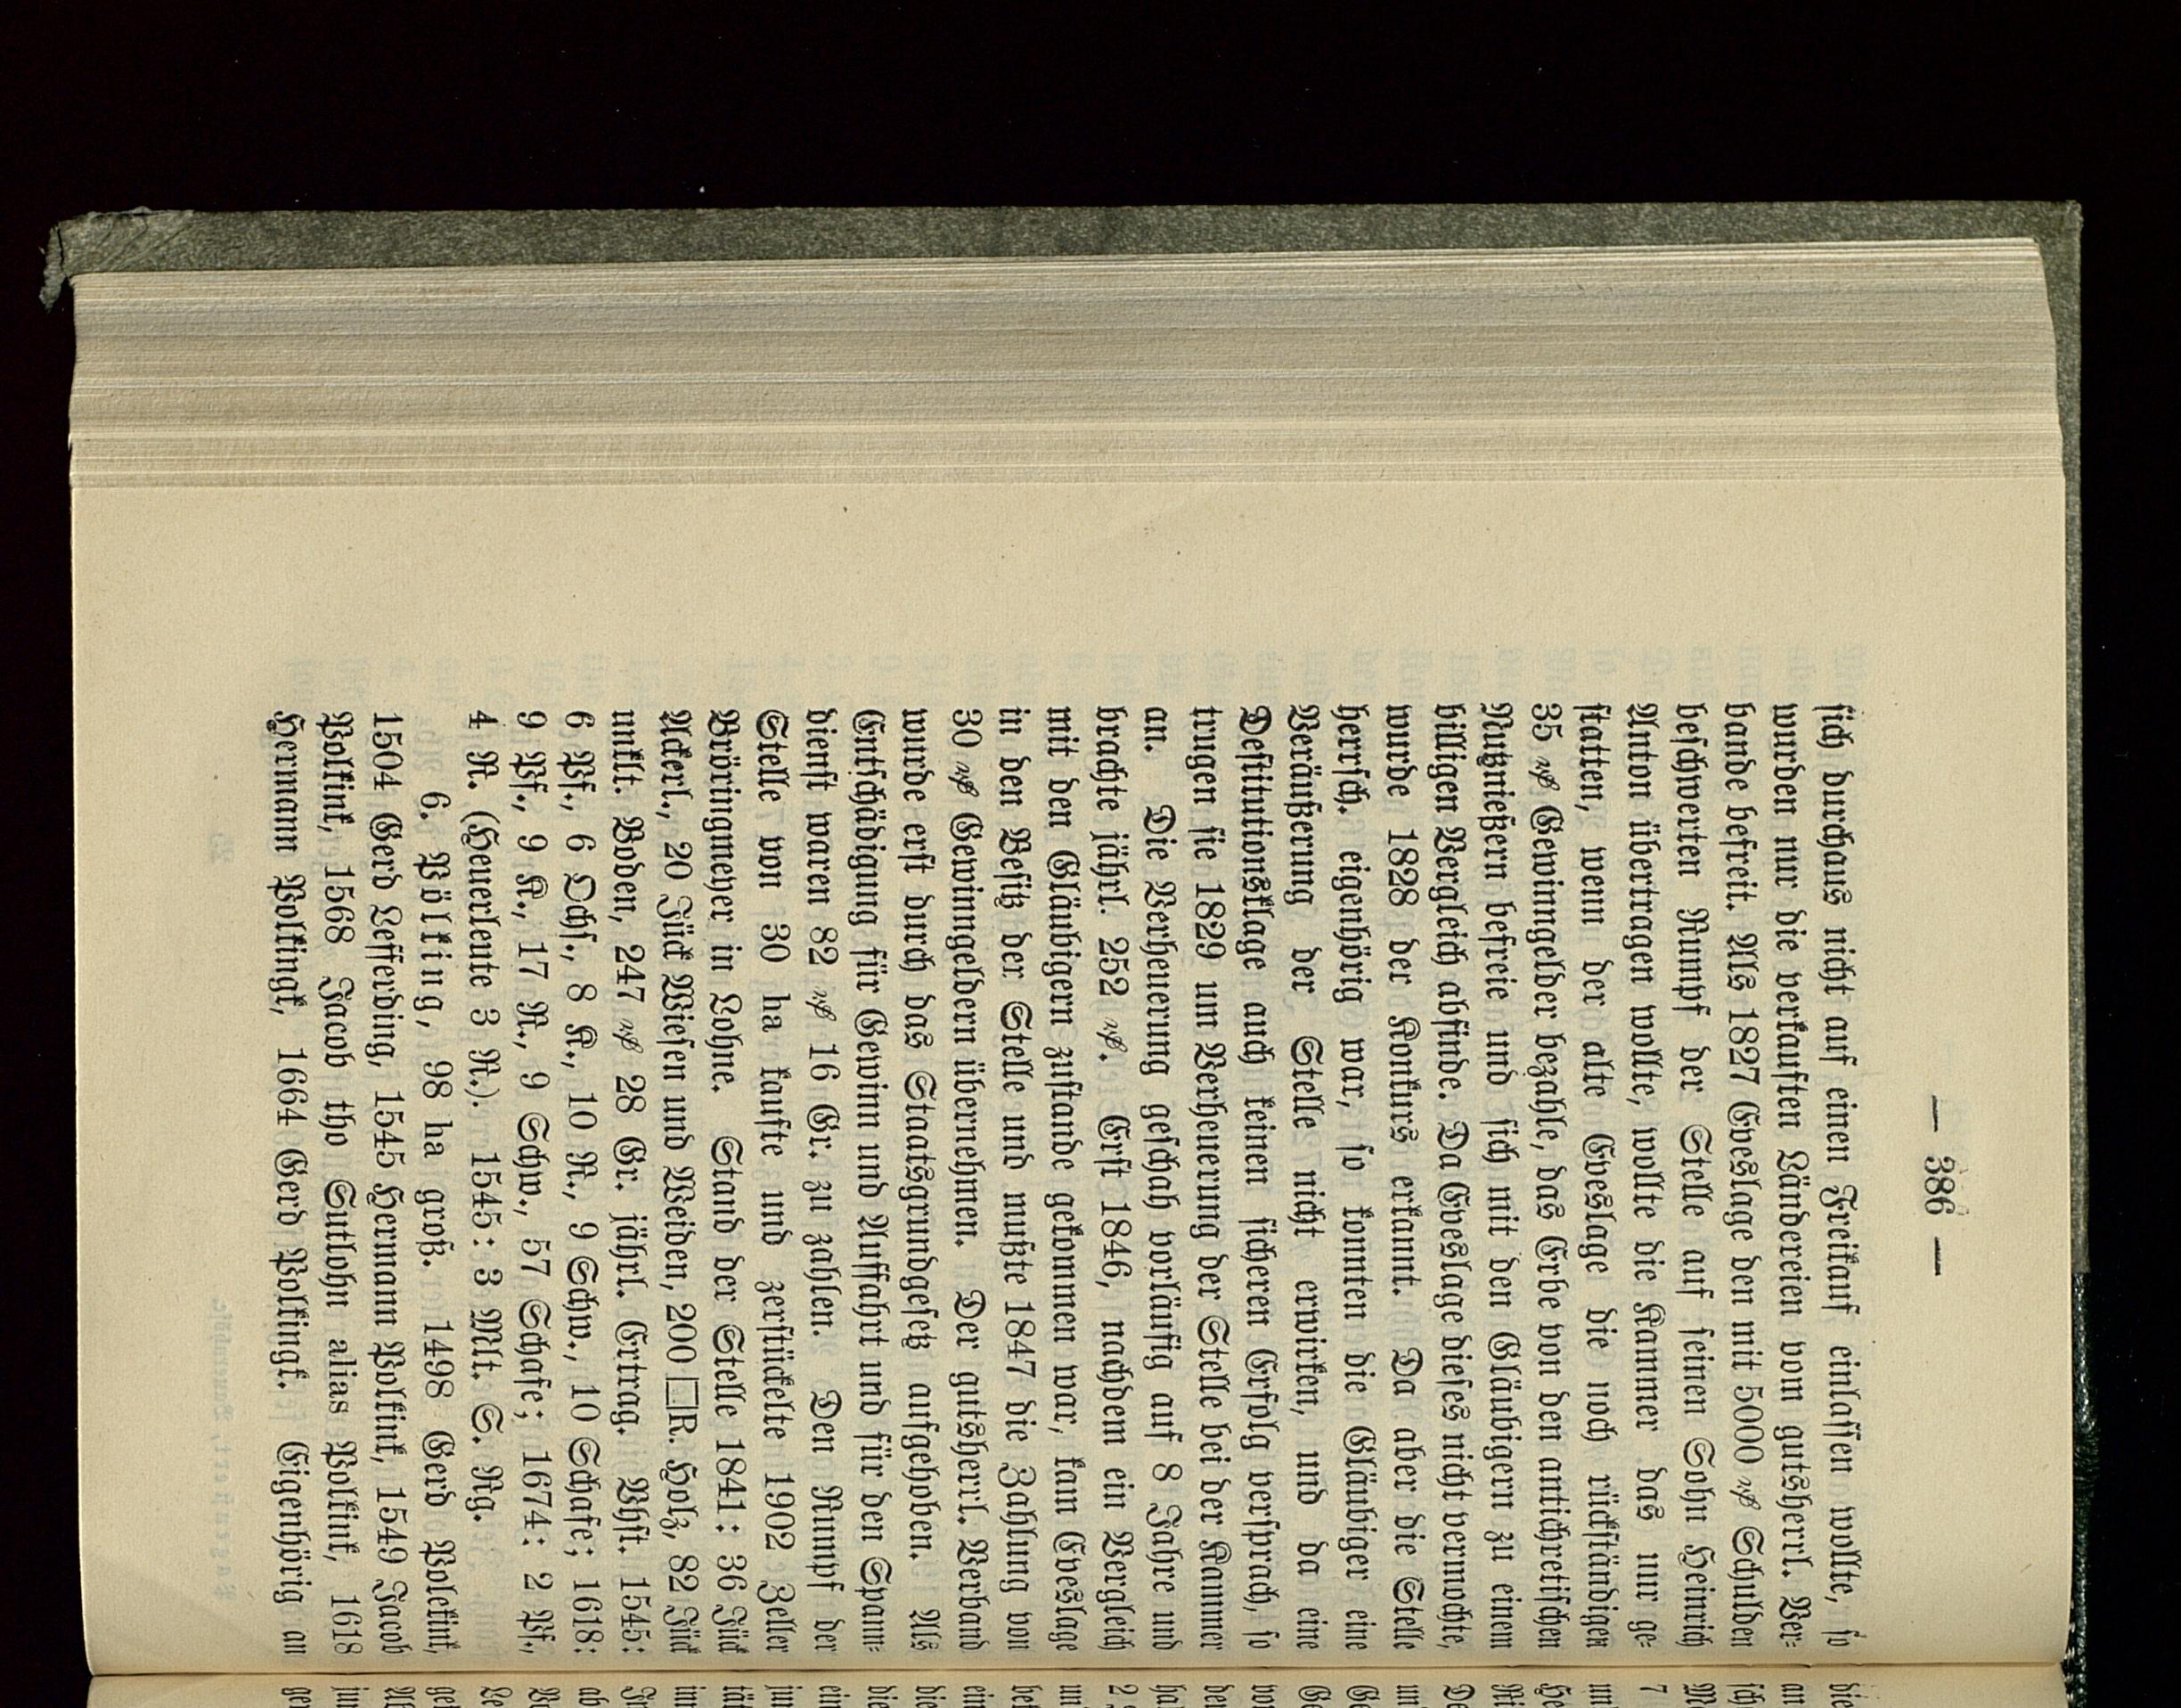 — 386 —
sich durchaus nicht auf einen Freikauf einlassen wollte, so
wurden nur die verkauften Ländereien vom gutsherrl. Ver-
bande befreit. Als 1827 Eveslage den mit 5000 ₰ Schulden
beschwerten Rumpf der Stelle auf seinen Sohn Heinrich
Anton übertragen wollte, wollte die Kammer das nur ge-
statten, wenn der alte Eveslage die noch rückständigen
35 ₰ Gewinngelder bezahle, das Erbe von den antichretischen
Nutznießern befreie und sich mit den Gläubigern zu einem
billigen Vergleich abfinde. Da Eveslage dieses nicht vermochte,
wurde 1828 der Konkurs erkannt. Da aber die Stelle
herrsch. eigenhörig war, so konnten die Gläubiger eine
Veräußerung der Stelle nicht erwirken, und da eine
Destitutionsklage auch keinen sicheren Erfolg versprach, so
trugen sie 1829 um Verheuerung der Stelle bei der Kammer
an. Die Verheuerung geschah vorläufig auf 8 Jahre und
brachte jährl. 252 ₰. Erst 1846, nachdem ein Vergleich
mit den Gläubigern zustande gekommen war, kam Eveslage
in den Besitz der Stelle und mußte 1847 die Zahlung von
30 ₰ Gewinngeldern übernehmen. Der gutsherrl. Verband
wurde erst durch das Staatsgrundgesetz aufgehoben. Als
Entschädigung für Gewinn und Auffahrt und für den Spann-
dienst waren 82 ₰ 16 Gr. zu zahlen. Den Rumpf der
Stelle von 30 ha kaufte und zerstückelte 1902 Zeller
Bröringmeyer in Lohne. Stand der Stelle 1841: 36 Jück
Ackerl., 20 Jück Wiesen und Weiden, 200 □R. Holz, 82 Jück
unklt. Boden, 247 ₰ 28 Gr. jährl. Ertrag. Vhst. 1545:
6 Pf., 6 Ochs., 8 K., 10 R., 9 Schw., 10 Schafe; 1618:
9 Pf., 9 K., 17 R., 9 Schw., 57 Schafe; 1674: 2 Pf.,
4 R. (Heuerleute 3 R.). 1545: 3 Mlt. S. Rg.
6. Pölking, 98 ha groß. 1498 Gerd Polekint,
1504 Gerd Lefferding, 1545 Hermann Polkint, 1549 Jacob
Polkint, 1568 Jacob tho Sutlohn alias Polkint, 1618
Hermann Polkingk, 1664 Gerd Polkingk. Eigenhörig an